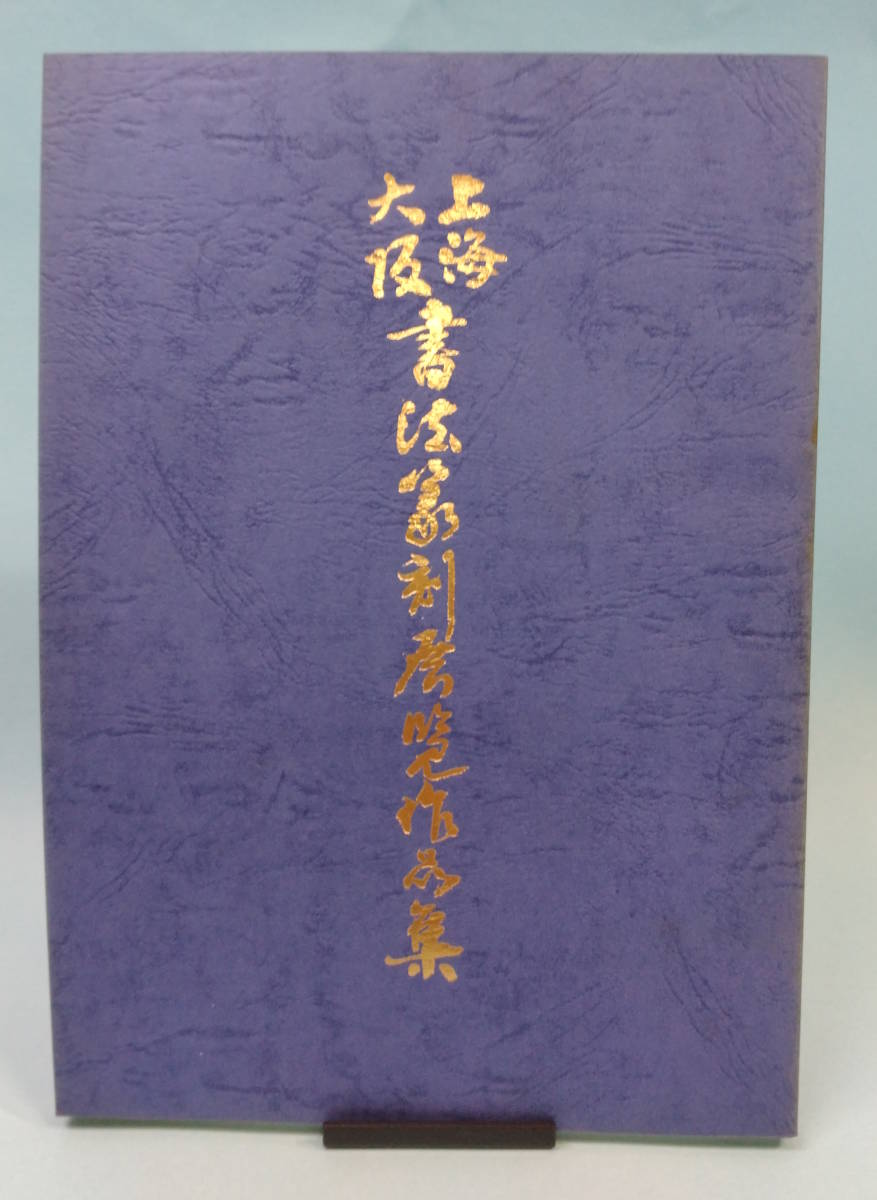 上海
大阪
書法篆刻展覧作品集